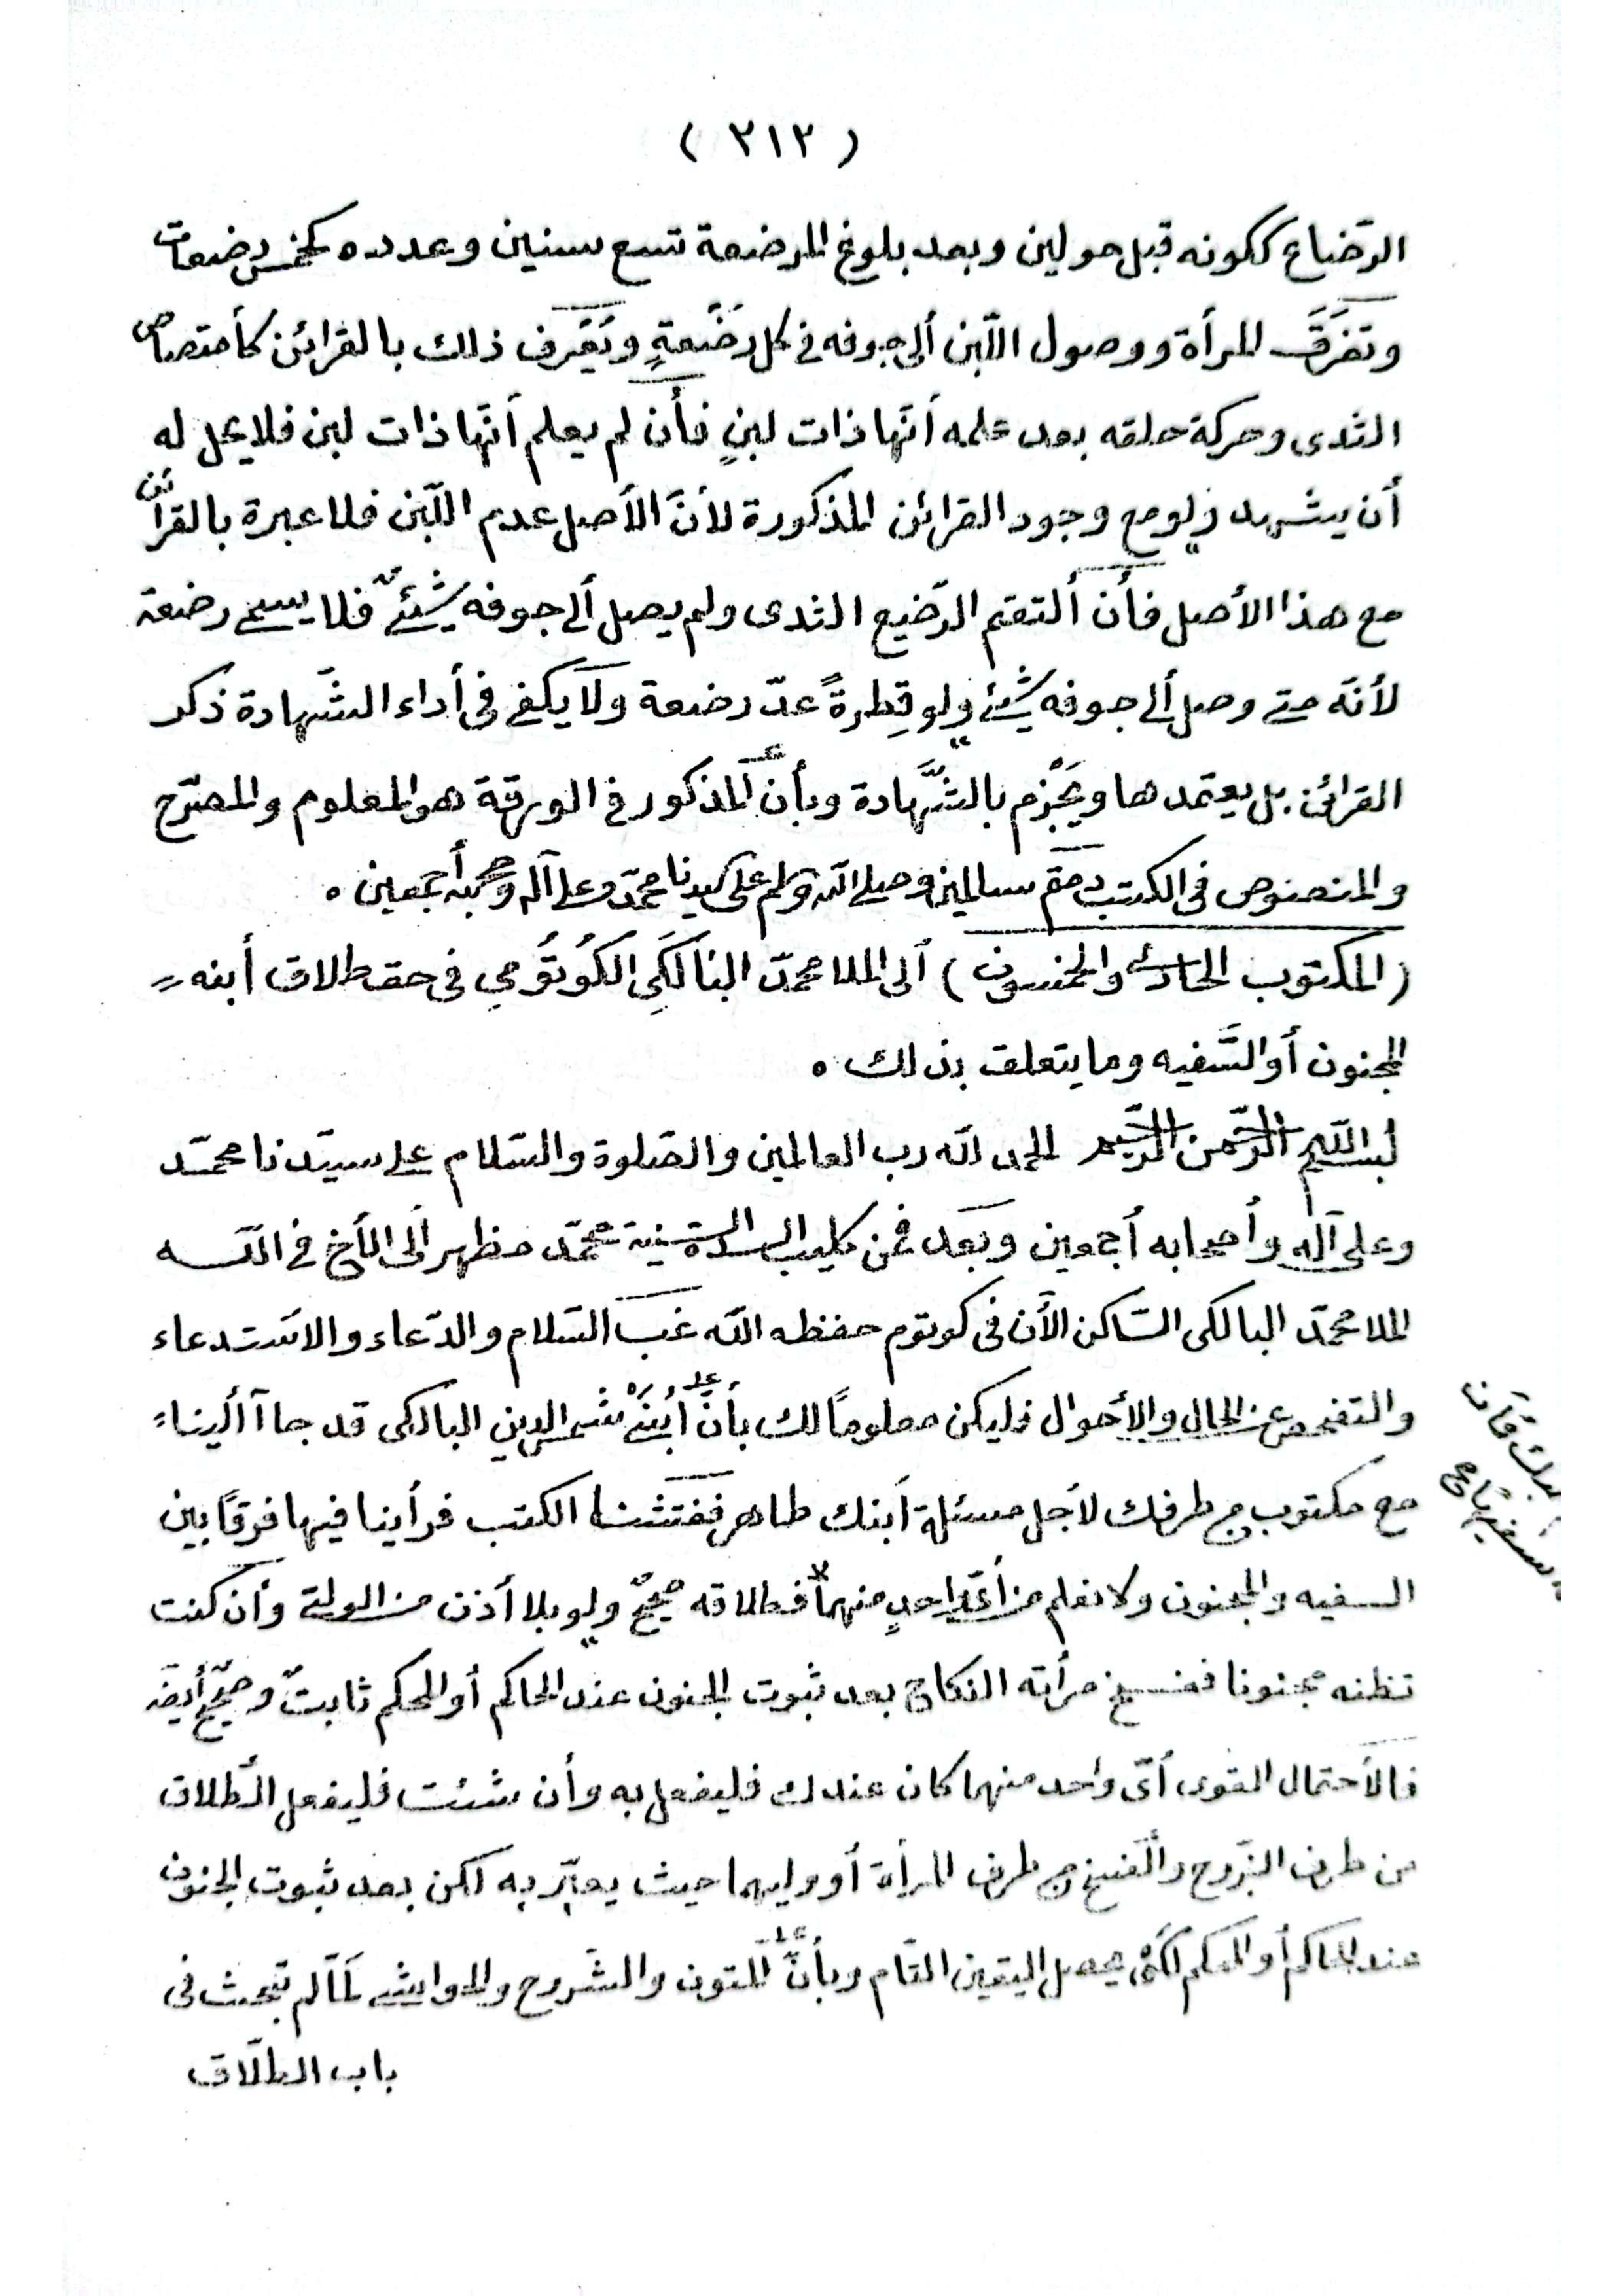 ( ٣١٢ )
الرّضاع ككونه قبل حولين وبعد بلوغ المرضعة تسع سنين وعدده كخمس رضعات
وتفرّق المرأة ووصول اللّبن ألى جوفه فى كل رضعةٍ ويَعْرف ذلك بالقرائن كأمتصاص
الثدى وحركة حلقه بعد علمه أنّها ذات لبنٍ فأن لم يعلم أنّها ذات لبن فلا يحل له
أن يشهد ولو مع وجود القرائن المذكورة لأنّ الأصل عدم اللّبن فلا عبرة بالقرائن
مع هذا الأصل فأن ألتقم الرّضيع الثدى ولم يصل ألى جوفه شيئٌ فلا يسمى رضعة
لأنّه متى وصل ألى جوفه شيئ ولو قطرةً عدّ رضعة ولا يكفى فى أداء الشّهادة ذكر
القرائن بل يعتمدها ويَجْزم بالشّهادة وبأنّ المذكور فى الورقة هو المعلوم والمصرّح
والمنصوص فى الكتب دمتم سالمين وصلى الله وسلم على سيدنا محمّد وعلى آله وصحبه أجمعين ٠
(المكتوب الحادى والخمسون) ألى الملا محمّد البالَكِى الكُوتُومى فى حق طلاق أبنه
المجنون أو السّفيه وما يتعلق بذلك ٠
بسم اللّه الرّحمن الرّحيم الحمد للّه رب العالمين والصّلوة والسّلام على سيّدنا محمّد
وعلى آله وأصحابه أجمعين وبَعد فمن كليب السدة السنية محمّد مظهر ألى الأخ فى اللّه
الملا محمّد البالكى السّاكن الأن فى كوتوم حفظه اللّه غبّ السّلام والدّعاء والاستدعاء
والتفحص عن الحال والأحوال فليكن معلومًا لك بأنّ أبنَىْ شمس الدين البالكى قد جاآ ألينا
مع مكتوب من طرفك لأجل مسئلة أبنك طاهر ففتشنا الكتب فرأينا فيها فرقًا بين
السفيه والمجنون ولا نعلم من أىّ واحدٍ منهما فطلاقه صحيحٌ ولو بلا أذن من الولى وأن كنت
تظنه مجنونا ففسخ مرأته النكاح بعد ثبوت الجنون عند الحاكم أو المحكم ثابتٌ وصحيحٌ أيضا
فالأحتمال القوى أىّ واحد منهما كان عندك فليفعل به وأن شئت فليفعل الطّلاق
من طرف الزّوج والفسخ من طرف المرأة أو وليهما حيث يعبّر به لكن بعد ثبوت الجنون
عند الحاكم أو المحكم لكى يحصل اليقين التّام وبأنّ المتون والشّروح والحواشى لمّا لم تبحث فى
باب الطلّاق